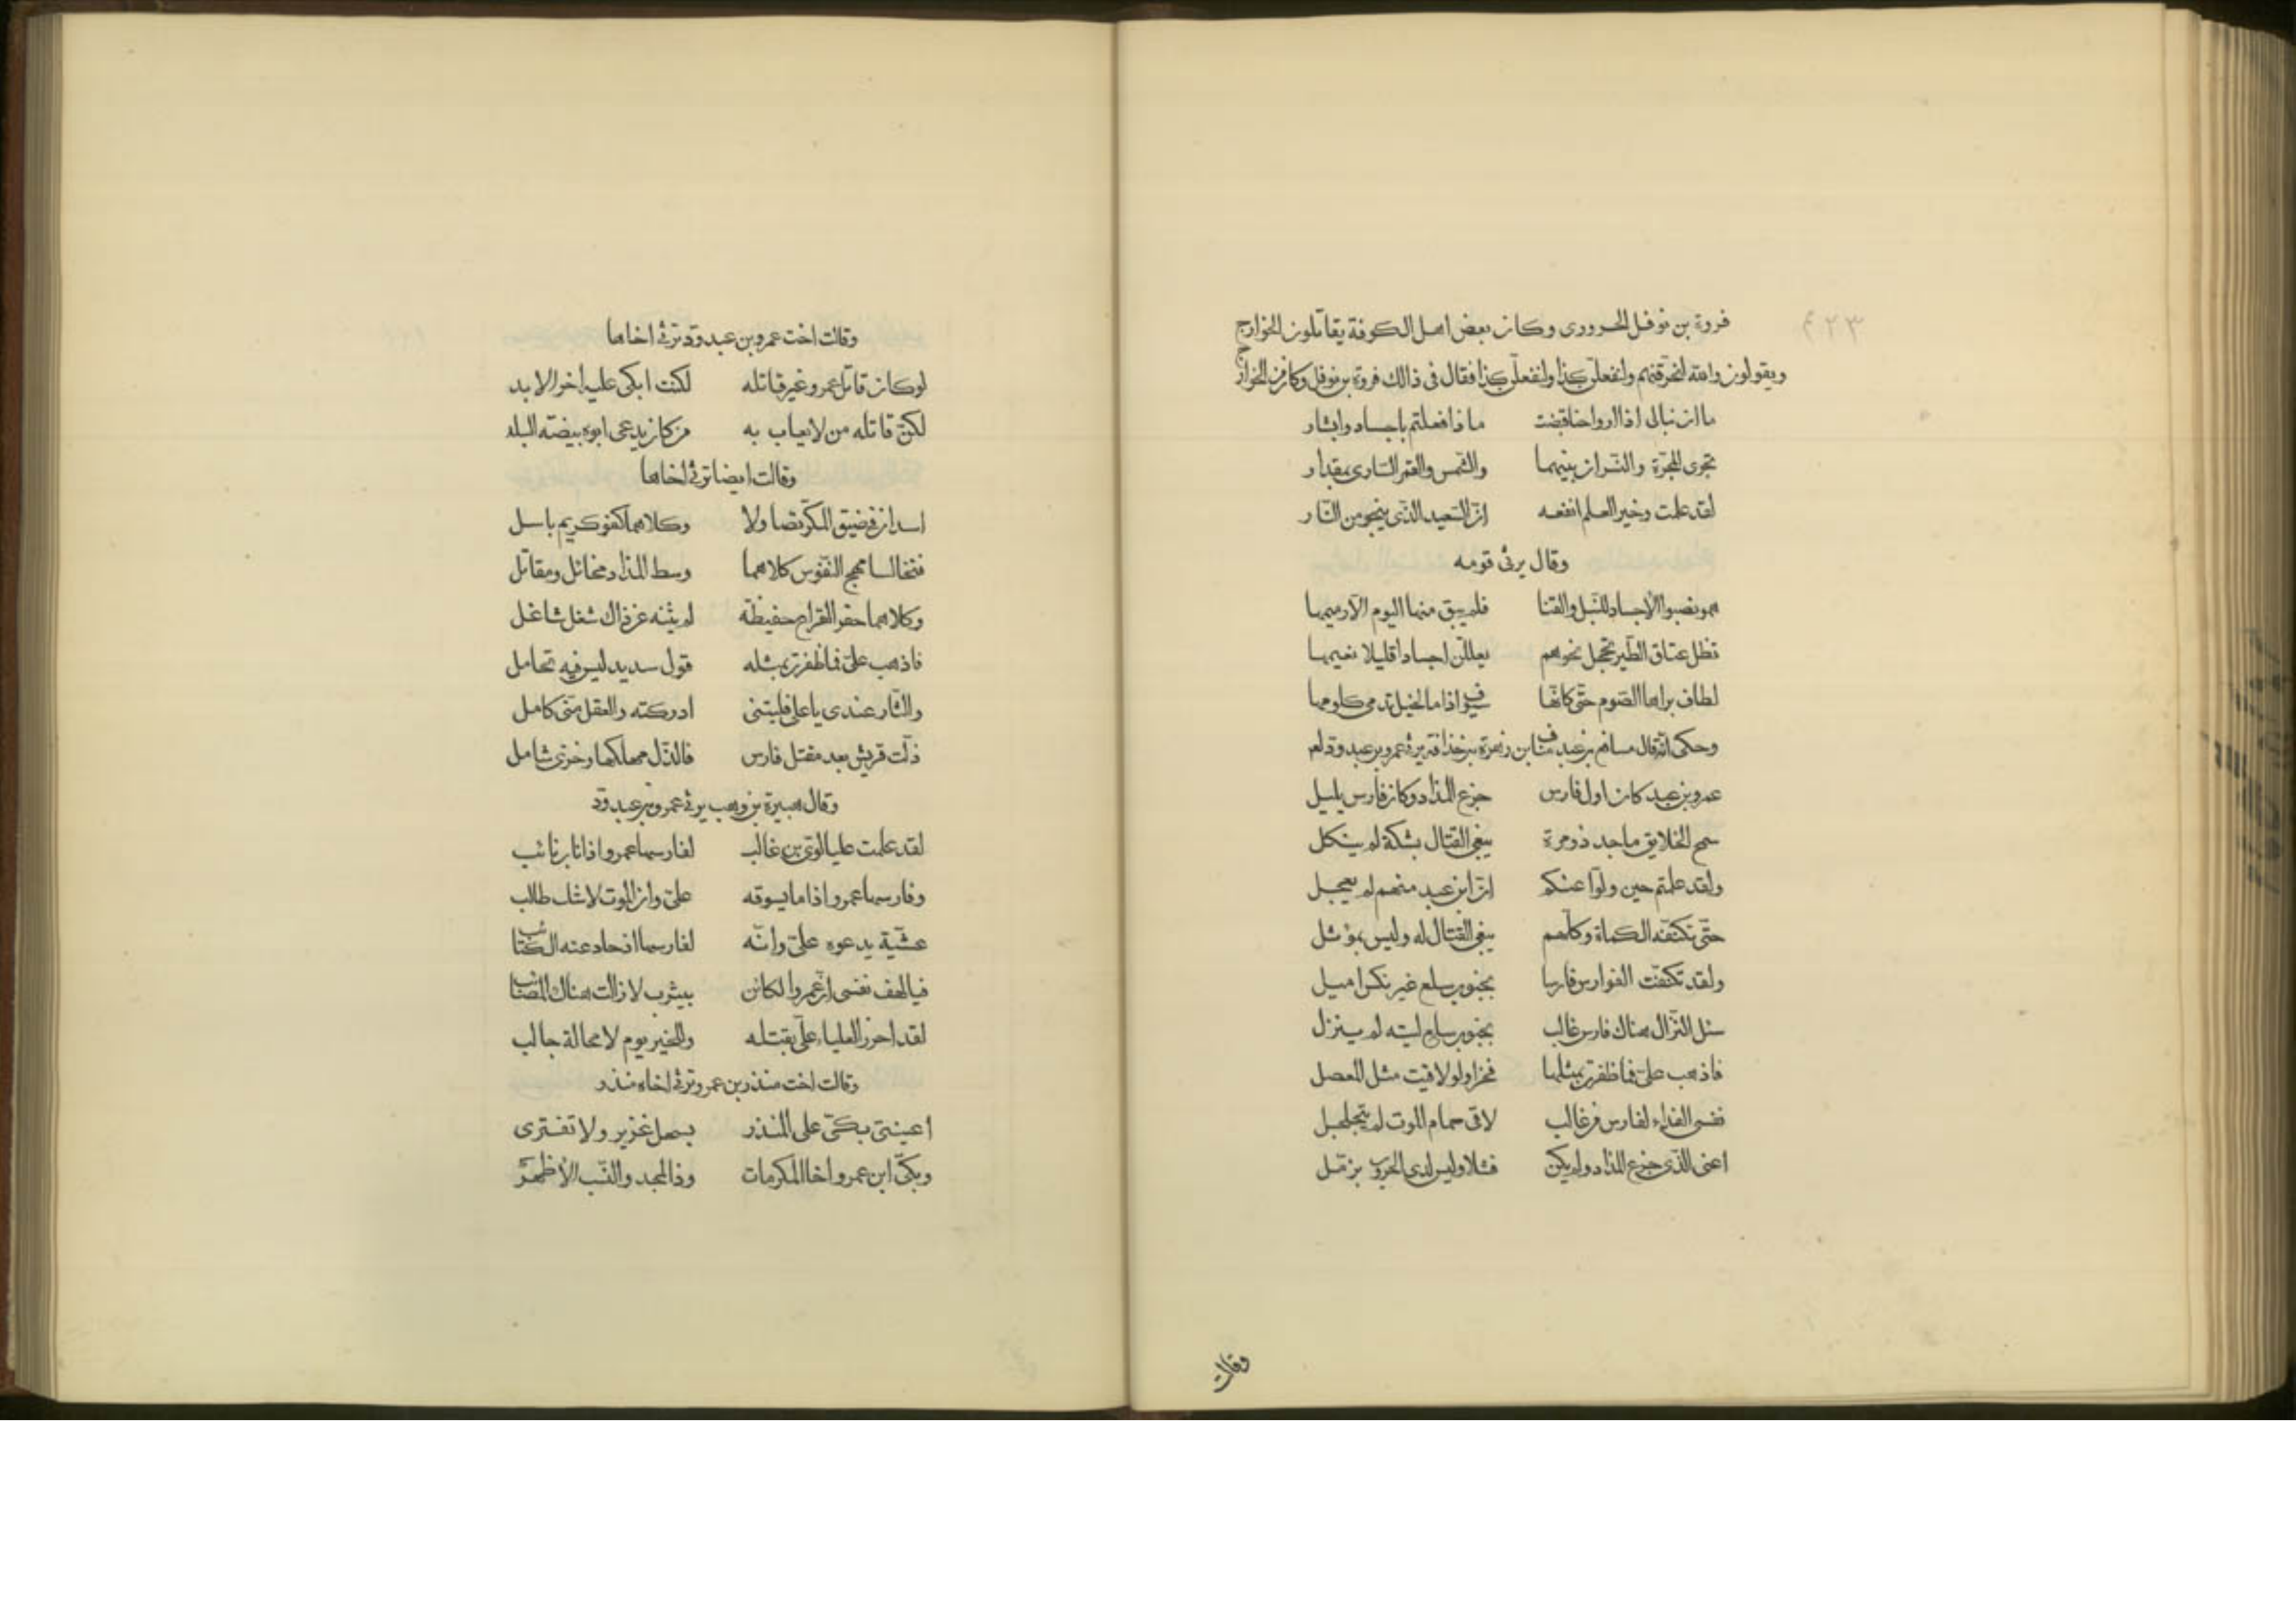 فروة بن نوفل الحروری وكان بعض اهل الكوفة يقاتلون الخوارج
ويقولون والله لنحرقنهم ولنفعلن كذا ولنفعلن كذا فقال فی ذالك فروة بن نوفل وكان من الخوارج
ما ان نبالی اذا ارواحنا قبضت ماذا فعلتم باجساد وابشار
تجری المجرّة والنسران بينهما والشمس والقمر الساری بمقدار
لقد علمت وخير العلم انفعه انّ السّعيد الّذی ينجو من النّار
وقال يرثی قومه
همو نصبوا الأجساد للنّبل والقنا فلم يبق منها اليوم الّا رميمها
تظل عتاق الطّير تحجل نحوهم يعللن اجسادا قليلا نعيمها
لطاف براها الصّوم حتّی كانّها سيوف اذا ما الخيل تدمی كلومها
وحكی انّه قال مسافع بن عبد مناف ابن زهرة بن حذافة يرثی عمرو بن عبد ودّ لعه
عمرو بن عبد كان اول فارس جزع المذاد وكان فارس يليل
سمح الخلايق ماجد ذو مرة يبغی القتال بشكة لم ينكل
ولقد علمتم حين ولّوا عنكم انّ ابن عبد منهم لم يعجل
حتّی تكنّفه الكماة وكلّهم يبغی القتال له وليس بمؤتل
ولقد تكنّفت الفوارس فارسا بجنوب سلع غير نكس اميل
سئل النّزال هناك فارس غالب بجنوب سلع ليته لم ينزل
فاذهب علیّ فما ظفرت بمثلها فخرا ولو لاقيت مثل المعصل
نفسی الفداء لفارس من غالب لاقی حمام الموت لم يتجلجل
اعنی الّذی جزع المذاد ولم يكن فشلا وليس لدی الحروب بزمّل
وقالت
وقالت اخت عمرو بن عبد ودّ ترثی اخاها
لو كان قاتل عمرو غير قاتله لكنت ابكی عليه اخر الابد
لكنّ قاتله من لا يعاب به من كان يدعی ابوه بيضة البلد
وقالت ايضا ترثی اخاها
اسدان فی ضيق المكرّ تصاولا وكلاهما كفو كريم باسل
فتخالسا مهج النّفوس كلاهما وسط المذاد مخاتل ومقاتل
وكلاهما حضر القراع حفيظة لم يثنه عن ذاك شغل شاغل
فاذهب علیّ فما ظفرت بمثله قول سديد ليس فيه تحامل
والثّار عندی يا علی فليتنی ادركته والعقل منّی كامل
ذلّت قريش بعد مقتل فارس فالذّل مهلكها وخزی شامل
وقال هبيرة بن وهب يرثی عمرو بن عبد ودّ
لقد علمت عليا لوی بن غالب لفارسها عمرو اذا ناب نائب
وفارسها عمرو اذا ما يسوقه علیّ وان الموت لا شك طالب
عشيّة يدعوه علیّ وانّه لفارسها اذ حاد عنه الكتائب
فيا لهف نفسی انّ عمروا لكائن بيثرب لا زالت هناك المصائب
لقد احرز العلياء علیّ بقتله وللخير يوم لا محالة جالب
وقالت اخت منذر بن عمرو ترثی اخاه منذر
اعينیّ بكّی علی المنذر بهمل غزير ولا تفتری
وبكّی ابن عمرو اخا المكرمات وذا المجد والنّسب الأظهر